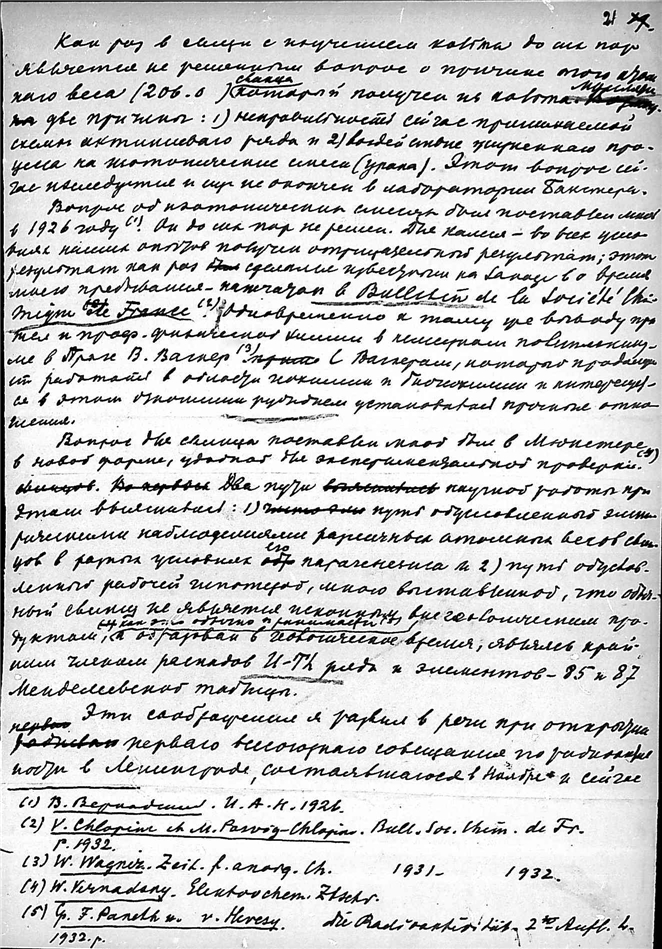 21
Как раз в связи с изучением кольма до сих пор
является не решенным вопрос о причине того атом
ного веса (206.0) свинца который получен из кольма. Мыслимы
две причины: 1) неправильность сейчас принимаемой
схемы актиниевого ряда и 2) воздействие жизненного про-
цесса на изотопические смеси (урана). Этот вопрос сей-
час исследуется и еще не окончен в лаборатории Бакстера.
Вопрос об изотопических смесях был поставлен мною
в 1926 году (1). Он до сих пор не решен. Для калия - во всех усло-
виях наших опытов получен отрицательный результат; этот
результат как раз был сделался известным на Западе во время
моего пребывания - напечатан в Bulletin de la Société Chi-
mique de France (2). Одновременно к тому же выводу при-
шел и проф. физической химии в немецком политехнику-
ме в Праге В. Вагнер (3) С Вагнером, который продолжа-
ет работать в области геохимии и биохимии и интересует-
ся в этом отношении рубидием установлены прочные отно-
шения.
Вопрос для свинца поставлен мною был в Мюнстере
в новой форме, удобной для экспериментальной проверки. (4)
свинцов. Во первых Два пути выяснились научной работы при
этом выяснились: 1) путь обусловленный эмпи-
рическими наблюдениями различных атомных весов свин-
цов в разных условиях его парагенезиса и 2) путь обуслов-
ленный рабочей гипотезой, мною выставленной, что обыч-
ный свинец не является исконным внегеологическим про-
дуктом, как это обычно принимается (5)
а образован в геологическое время, являясь край-
ним членом распадов U-Th ряда и элементов - 85 и 87
Менделеевской таблицы.
Эти соображения я развил в речи при открытии
первого всесоюзного совещания по радиоактив
ности в Ленинграде, состоявшегося в Ноябре и сейчас
(1) В. Вернадский. И.А.Н. 1926.
(2) V. Chlopin et M. Pasvig-Chlopin. Bull. Soc. Chim. de Fr.
P. 1932.
(3) W. Wagner. Zeit. f. anorg. Ch. 1931- 1932.
(4) W. Vernadsky. Elektrochem. Ztschr.
(5) Ср. F. Paneth u. v. Hevesy. Die Radioactivität. 2te Aufl. L.
1932.г.